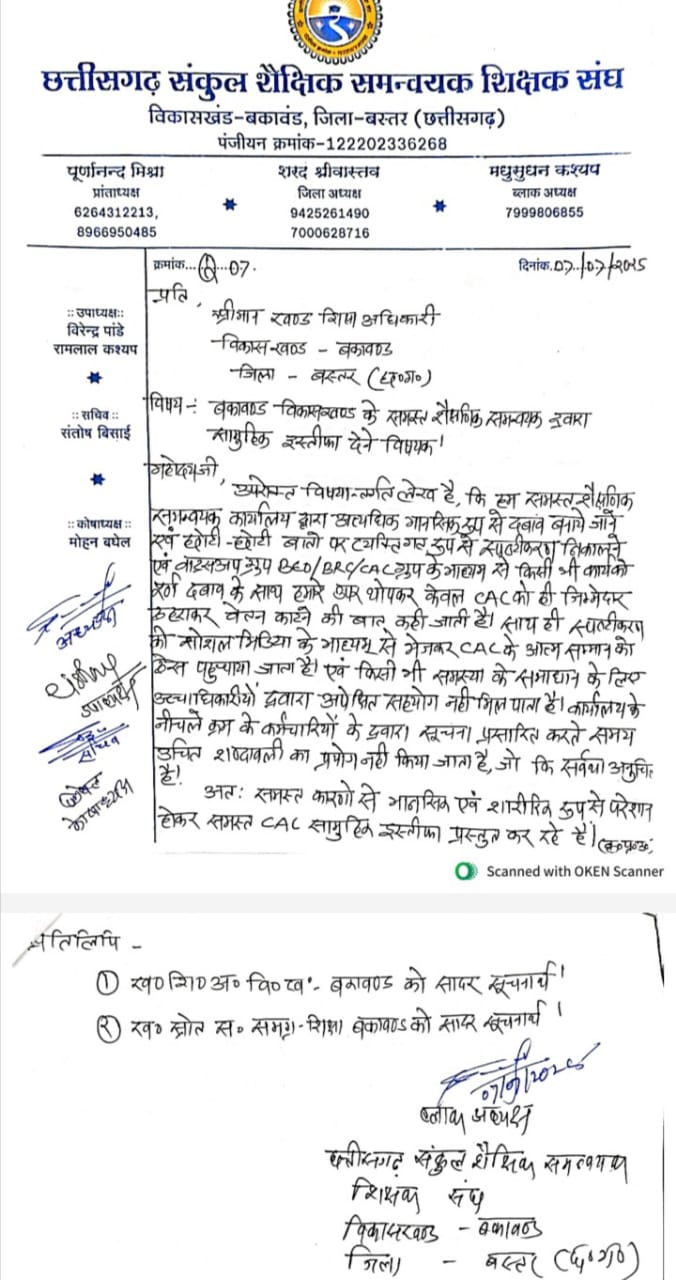 छत्तीसगढ़ संकुल शैक्षिक समन्वयक शिक्षक संघ
विकासखंड-बकावंड, जिला-बस्तर (छत्तीसगढ़)
पंजीयन क्रमांक-122202336268
पूर्णानन्द मिश्रा
प्रांताध्यक्ष
6264312213,
8966950485
शरद श्रीवास्तव
जिला अध्यक्ष
9425261490
7000628716
मधुसुधन कश्यप
ब्लाक अध्यक्ष
7999806855
क्रमांक...07.
दिनांक.07./07/2025
:: उपाध्यक्ष::
विरेन्द्र पांडे
रामलाल कश्यप
:: सचिव ::
संतोष बिसाई
:: कोषाध्यक्ष ::
मोहन बघेल
अध्यक्ष
उपाध्यक्ष
सचिव
कोषाध्यक्ष
प्रति,
श्रीमान खण्ड शिक्षा अधिकारी
विकास-खण्ड - बकावण्ड
जिला - बस्तर (छ०ग०)
विषय -: बकावण्ड विकासखण्ड के समस्त शैक्षणिक समन्वयक द्वारा
सामुहिक इस्तीफा देने विषयक।
महोदयजी,
उपरोक्त विषयान्तर्गत लेख है, कि हम समस्त शैक्षणिक
समन्वयक कार्यालय द्वारा अत्यधिक मानसिक रूप से दबाव बनाये जाने
एवं छोटी-छोटी बातो पर व्यक्तिगत रूप से स्पष्टीकरण निकालने
एवं वाट्सअप ग्रुप BEO/BRC/CAC ग्रुप के माध्यम से किसी भी कार्य को
पूर्ण दबाव के साथ हमारे उपर थोपकर केवल CAC को ही जिम्मेदार
ठहराकर वेतन काटने की बात कही जाती है। साथ ही स्पष्टीकरण
को सोशल मिडिया के माध्यम से भेजकर CAC के आत्म सम्मान को
ठेस पहुचाया जाता है। एवं किसी भी समस्या के समाधान के लिए
उच्चाधिकारीयों द्वारा अपेक्षित सहयोग नही मिल पाता है। कार्यालय के
नीचले क्रम के कर्मचारियों के द्वारा सूचना प्रसारित करते समय
उचित शब्दावली का प्रयोग नही किया जाता है, जो कि सर्वथा अनुचित
है।
अतः समस्त कारणो से मानसिक एवं शारीरिक रूप से परेशान
होकर समस्त CAC सामुहिक इस्तीफा प्रस्तुत कर रहे है।
Scanned with OKEN Scanner
प्रतिलिपि -
① ख०शि०अ० वि०ख०- बकावण्ड को सादर सूचनार्थ।
② ख० स्रोत स० समग्र-शिक्षा बकावण्ड को सादर सूचनार्थ।
07/07/2025
ब्लाक अध्यक्ष
छत्तीसगढ़ संकुल शैक्षिक समन्वयक
शिक्षक संघ
विकासखण्ड - बकावण्ड
जिला - बस्तर (छ०ग०)